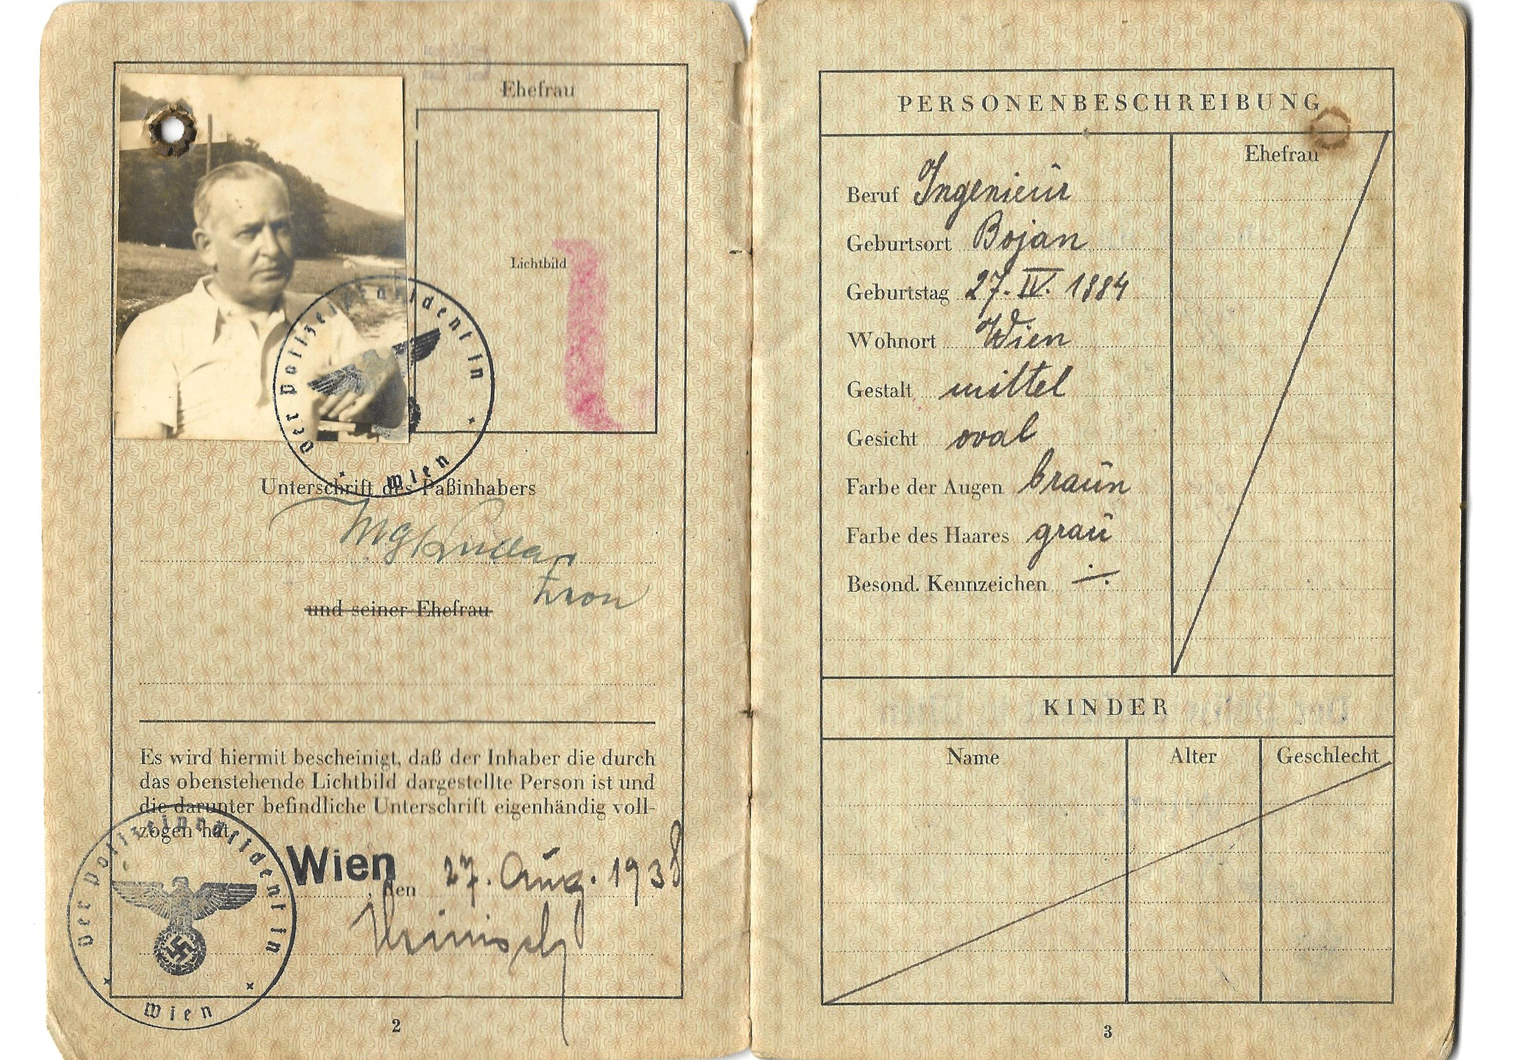 Ehefrau
Lichtbild
Der Polizeipräsident in
Wien
Unterschrift des Paßinhabers
und seiner Ehefrau
Es wird hiermit bescheinigt, daß der Inhaber die durch
das obenstehende Lichtbild dargestellte Person ist und
die darunter befindliche Unterschrift eigenhändig voll-
zogen hat.
Wien, den 27. Aug. 1938
Der Polizeipräsident in
Wien
2
PERSONENBESCHREIBUNG
Ehefrau
Beruf Ingenieur
Geburtsort Bojan
Geburtstag 27. IV. 1884
Wohnort Wien
Gestalt mittel
Gesicht oval
Farbe der Augen braun
Farbe des Haares grau
Besond. Kennzeichen ÷
KINDER
Name Alter Geschlecht
3